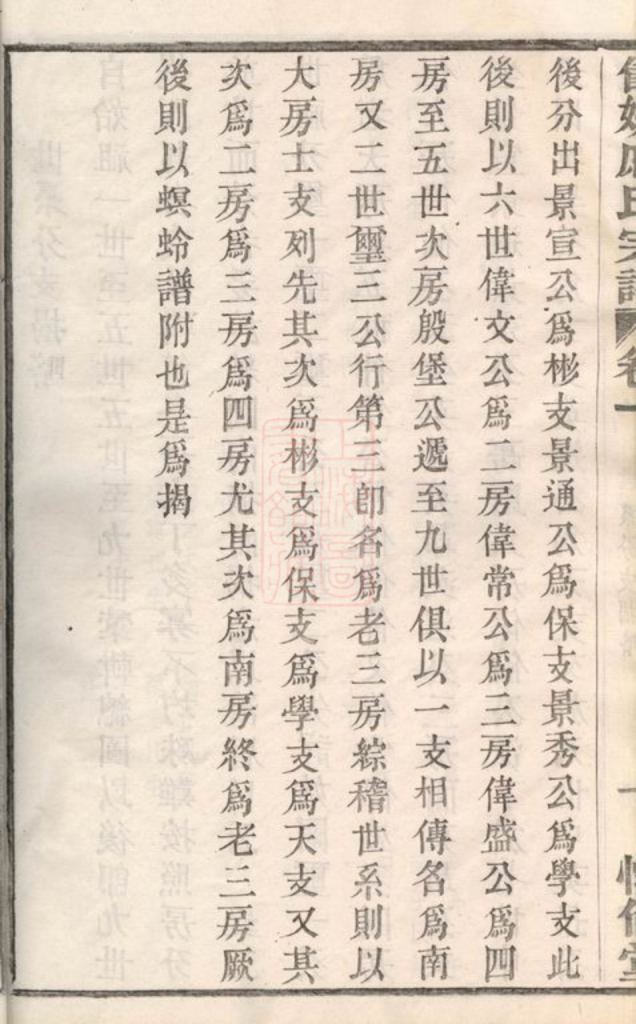 後分出景宣公爲彬支景通公爲保支景秀公爲學支此
後則以六世偉文公爲二房偉常公爲三房偉盛公爲四
房至五世次房殷堡公遞至九世俱以一支相傳名爲南
房又二世璽三公行第三卽名爲老三房綜稽世系則以
大房士支列先其次爲彬支爲保支爲學支爲天支又其
次爲二房爲三房爲四房尤其次爲南房終爲老三房厥
後則以螟蛉譜附也是爲揭